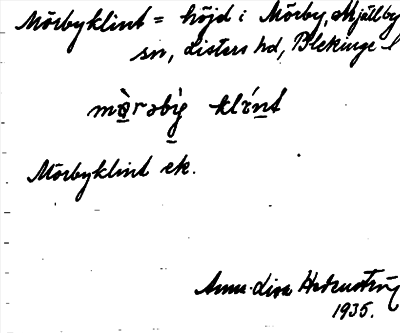 Mörbyklint = höjd i Mörby, Mjällby
sn, Listers hd, Blekinge l
mὰrəbìg klínt
Mörbyklint ek.
Anna-Lisa
1935.